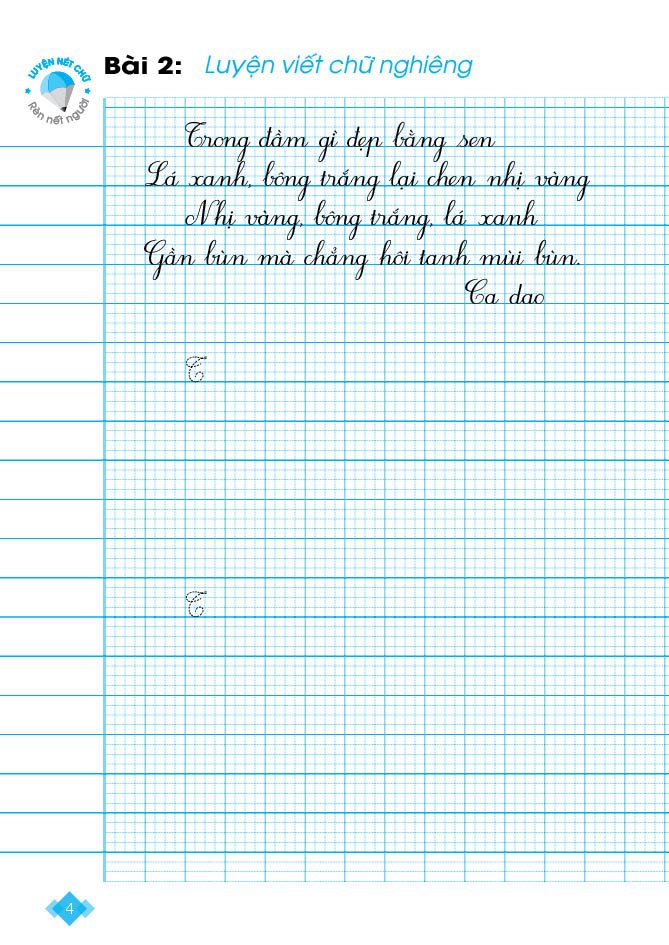 LUYỆN NÉT CHỮ
Rèn nết người
Bài 2: Luyện viết chữ nghiêng
Trong đầm gì đẹp bằng sen
Lá xanh, bông trắng lại chen nhị vàng
Nhị vàng, bông trắng, lá xanh
Gần bùn mà chẳng hôi tanh mùi bùn.
Ca dao
T
T
4